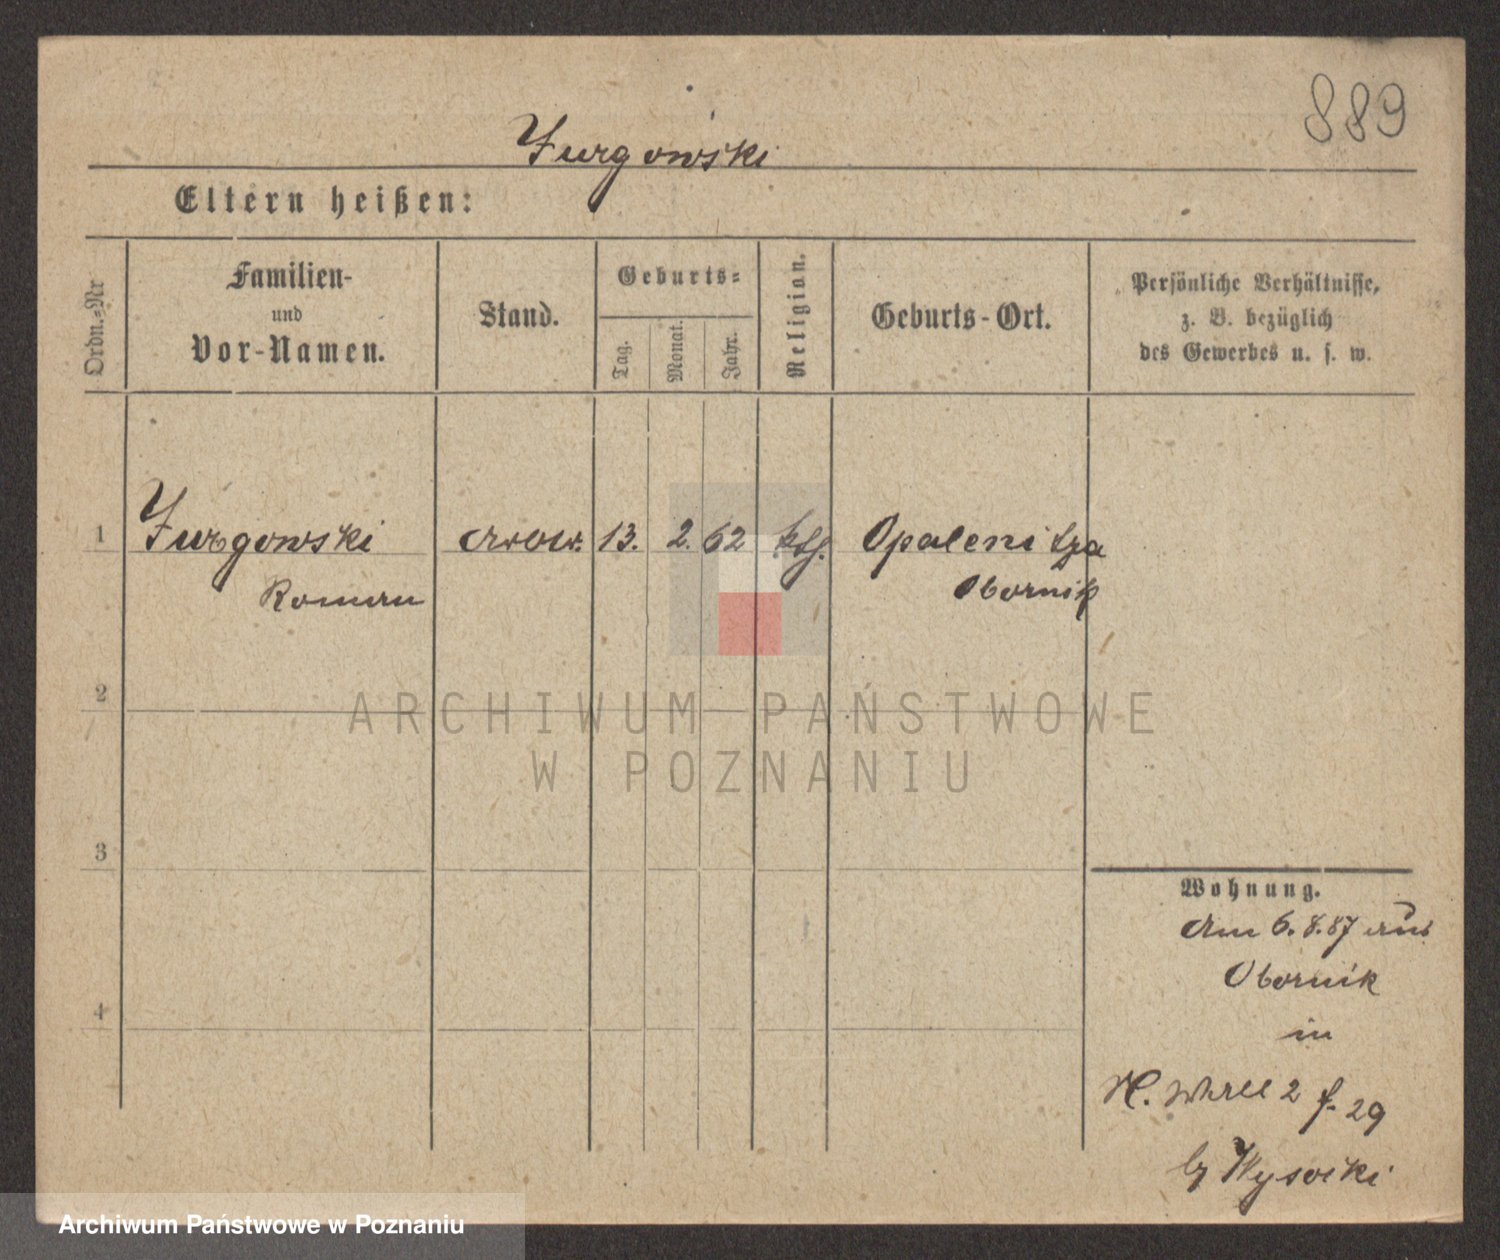 889
Jurgowski
Eltern heißen:
Ordn.=Nr
Familien-
und
Vor-Namen.
Stand.
Geburts=
Tag.
Monat.
Jahr.
Religion.
Geburts-Ort.
Persönliche Verhältnisse,
z. B. bezüglich
des Gewerbes u. s. w.
1
Jurgowski
13.
2.
62
kth.
Opalenitza
Roman
Obornik
2
ARCHIWUM PAŃSTWOWE
W POZNANIU
3
Wohnung.
am 6.8.87 aus
Obornik
in
4
W. Wall 2 f. 29
by Wysocki
Archiwum Państwowe w Poznaniu